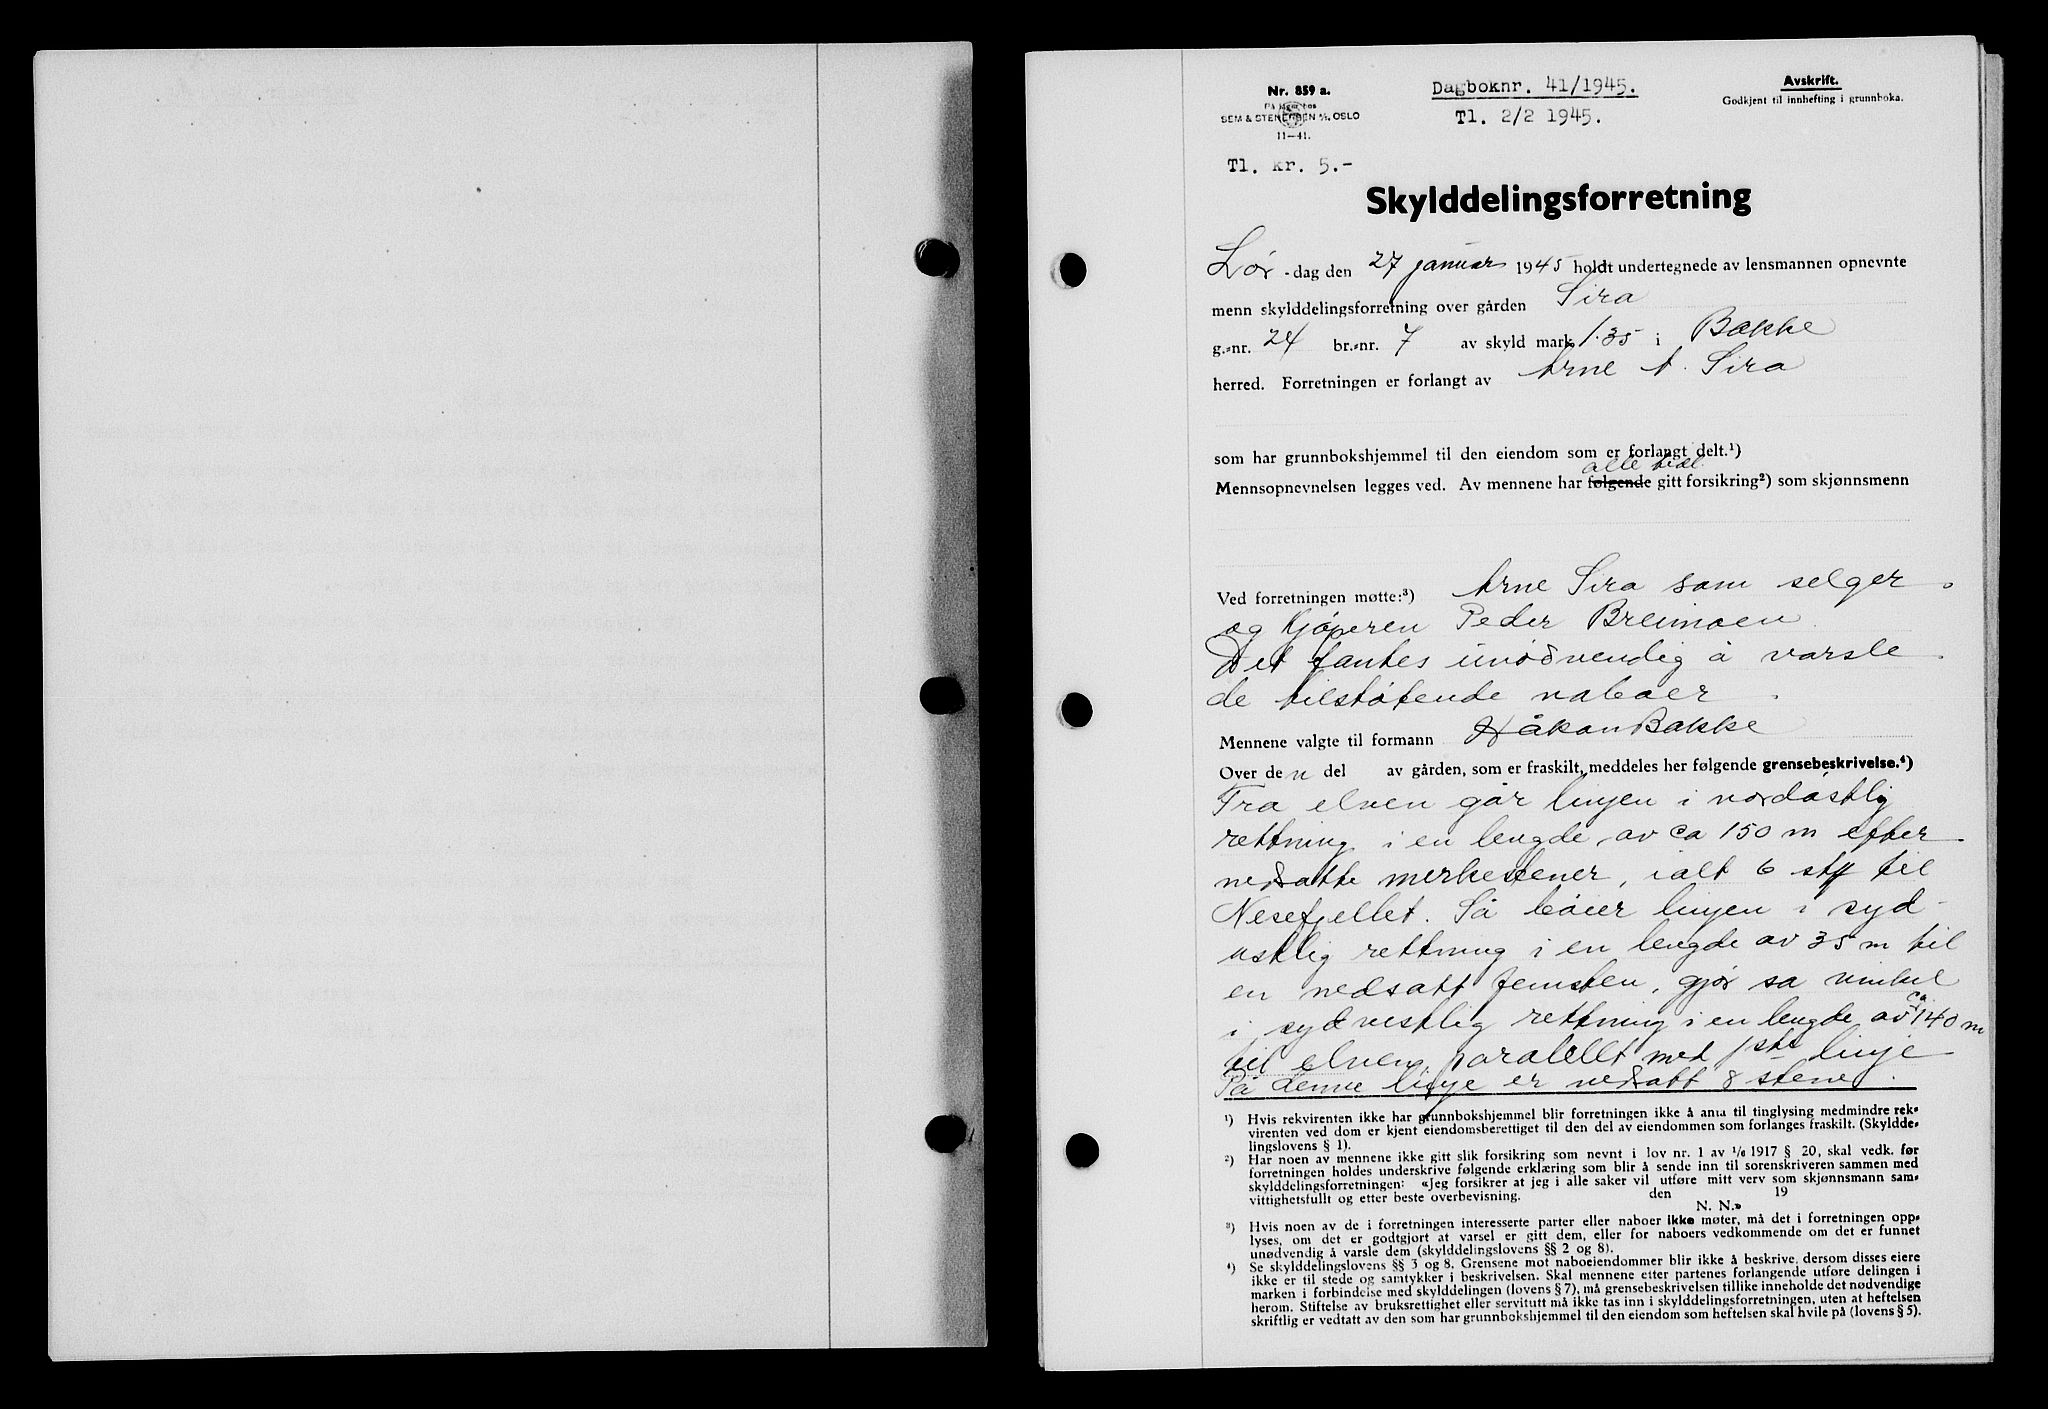 Nr. 859 a.
På lager hos
SEM & STENERSEN A/S, OSLO
11—41.
Dagboknr. 41/1945.
Tl. 2/2 1945.
Avskrift.
Godkjent til innhefting i grunnboka.
Tl. kr. 5.-
Skylddelingsforretning
Lør - dag den 27 januar 1945 holdt undertegnede av lensmannen opnevnte
menn skylddelingsforretning over gården Sira
g.-nr. 24 br.-nr. 7 av skyld mark 1.35 i Bakke
herred. Forretningen er forlangt av Arne A. Sira
som har grunnbokshjemmel til den eiendom som er forlangt delt.¹)
alle tidl.
Mennsopnevnelsen legges ved. Av mennene har følgende gitt forsikring²) som skjønnsmenn
Ved forretningen møtte:³) Arne Sira som selger
og Kjøperen Peder Breimoen.
Det fantes unødvendig å varsle
de tilstøtende naboer.
Mennene valgte til formann Håkon Bakke
Over den del av gården, som er fraskilt, meddeles her følgende grensebeskrivelse.⁴)
Fra elven går linjen i nordøstlig
rettning i en lengde av ca 150 m efter
nedsatte merkestener, ialt 6 stk til
Nesefjellet. Så bøier linjen i syd-
østlig rettning i en lengde av 35 m til
en nedsatt femsten, gjør så vinkel
i sydvestlig rettning i en lengde av ca 140 m
til elven, paralellt med 1ste linje
På denne linje er nedsatt 8 stener.
¹) Hvis rekvirenten ikke har grunnbokshjemmel blir forretningen ikke å anta til tinglysing medmindre rek-
virenten ved dom er kjent eiendomsberettiget til den del av eiendommen som forlanges fraskilt. (Skyldde-
lingslovens § 1).
²) Har noen av mennene ikke gitt slik forsikring som nevnt i lov nr. 1 av 1/6 1917 § 20, skal vedk. før
forretningen holdes underskrive følgende erklæring som blir å sende inn til sorenskriveren sammen med
skylddelingsforretningen: «Jeg forsikrer at jeg i alle saker vil utføre mitt verv som skjønnsmann sam-
vittighetsfullt og etter beste overbevisning. den 19
N. N.»
³) Hvis noen av de i forretningen interesserte parter eller naboer ikke møter, må det i forretningen opp-
lyses, om det er godtgjort at varsel er gitt dem, eller for naboers vedkommende om det er funnet
unødvendig å varsle dem (skylddelingslovens §§ 2 og 8).
⁴) Se skylddelingslovens §§ 3 og 8. Grensene mot naboeiendommer blir ikke å beskrive, dersom disses eiere
ikke er til stede og samtykker i beskrivelsen. Skal mennene etter partenes forlangende utføre delingen i
marken i forbindelse med skylddelingen (lovens § 7), må grensebeskrivelsen tillike inneholde det nødvendige
herom. Stiftelse av bruksrettighet eller servitutt må ikke tas inn i skylddelingsforretningen, uten at heftelsen
skriftlig er vedtatt av den som har grunnbokshjemmel til den eiendom som heftelsen skal hvile på (lovens § 5).